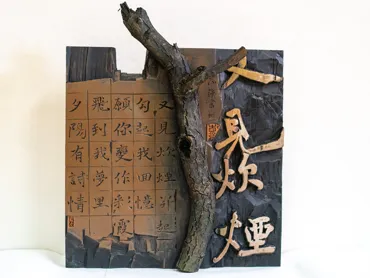 又見炊煙
又見炊煙升起
勾起我回憶
願你變作彩霞
飛到我夢里
夕陽有詩情